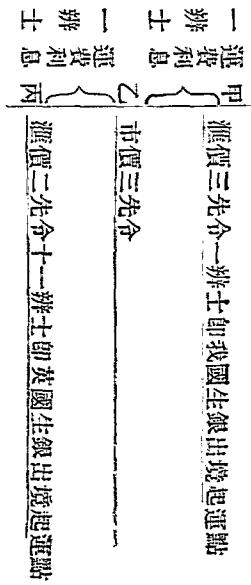 甲 匯價三先令一辨士即我國生銀出境起運點
運費利息
一辨士
乙 市價三先令
運費利息
一辨士
丙 匯價二先令十一辨士即英國生銀出境起運點